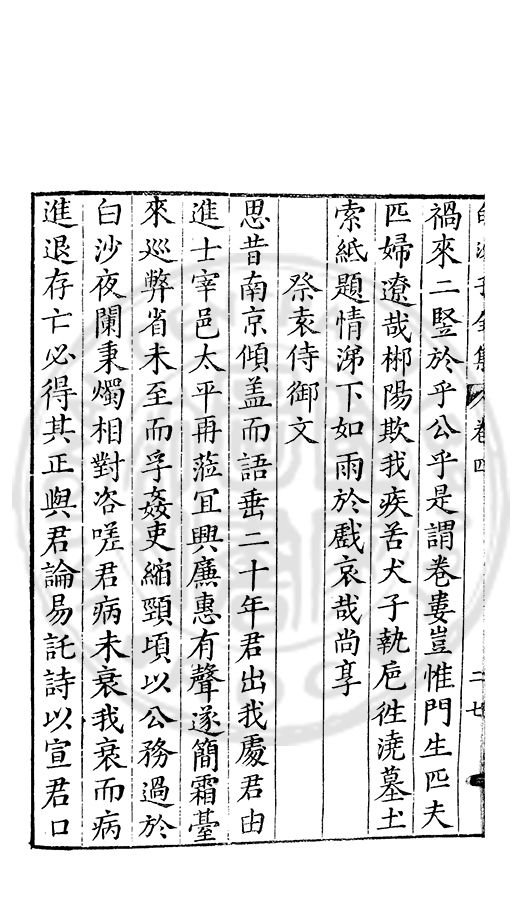 白沙子全集 卷四 二七
禍來二竪於乎公乎是謂卷婁豈惟門生匹夫
匹婦遼哉郴陽欺我疾苦犬子執卮徃澆墓土
索紙題情涕下如雨於戲哀哉尚享
祭袁侍御文
思昔南京傾盖而語垂二十年君出我處君由
進士宰邑太平再蒞冝興廉惠有聲遂簡霜臺
來巡弊省未至而孚姦吏縮頸頃以公務過於
白沙夜闌秉燭相對咨嗟君病未衰我衰而病
進退存亡必得其正與君論易託詩以宣君口